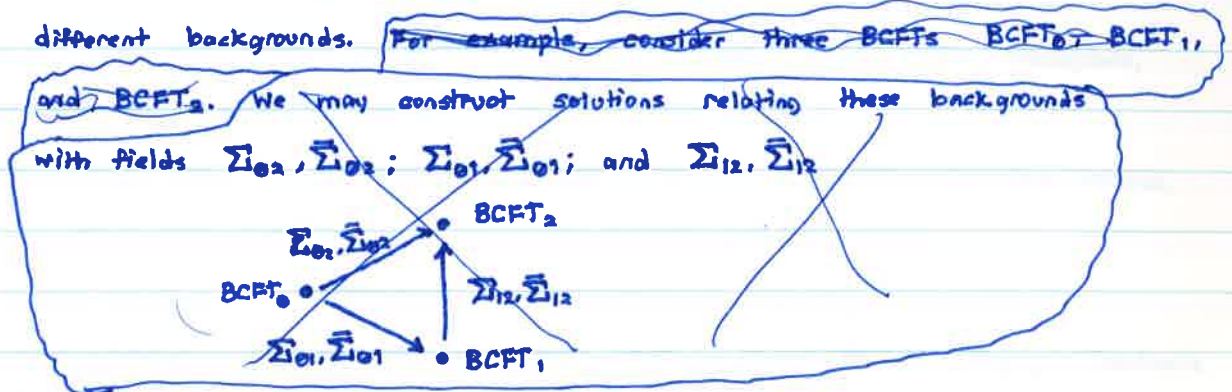 different backgrounds. For example, consider three BCFTs BCFT₀, BCFT₁,
and BCFT₂. We may construct solutions relating these backgrounds
with fields Σ₀₂, Σ̄₀₂; Σ₀₁, Σ̄₀₁; and Σ₁₂, Σ̄₁₂
BCFT₂
Σ₀₂, Σ̄₀₂
BCFT₀
Σ₁₂, Σ̄₁₂
Σ₀₁, Σ̄₀₁
BCFT₁